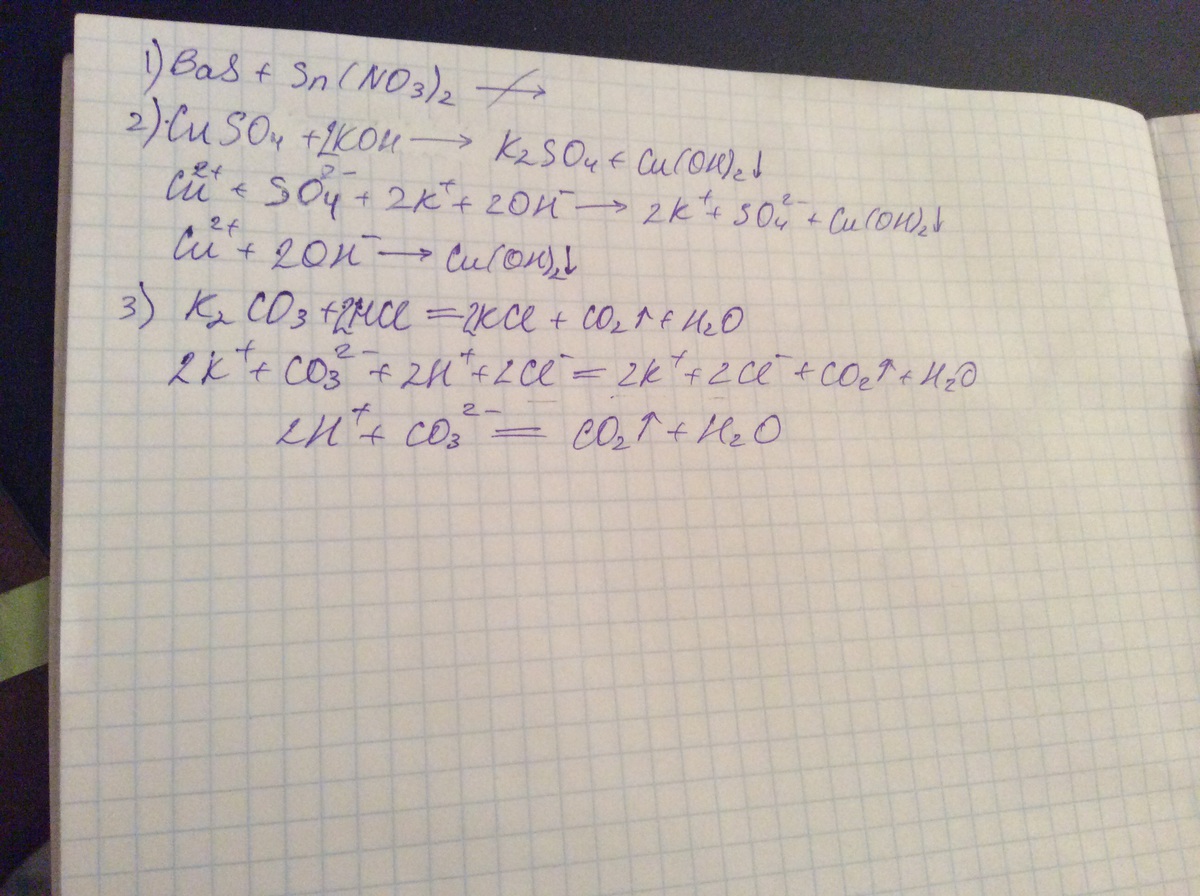 1) BaS + Sn(NO₃)₂ ↛
2) CuSO₄ + 2KOH → K₂SO₄ + Cu(OH)₂↓
Cu²⁺ + SO₄²⁻ + 2K⁺ + 2OH⁻ → 2K⁺ + SO₄²⁻ + Cu(OH)₂↓
Cu²⁺ + 2OH⁻ → Cu(OH)₂↓
3) K₂CO₃ + 2HCl = 2KCl + CO₂↑ + H₂O
2K⁺ + CO₃²⁻ + 2H⁺ + 2Cl⁻ = 2K⁺ + 2Cl⁻ + CO₂↑ + H₂O
2H⁺ + CO₃²⁻ = CO₂↑ + H₂O